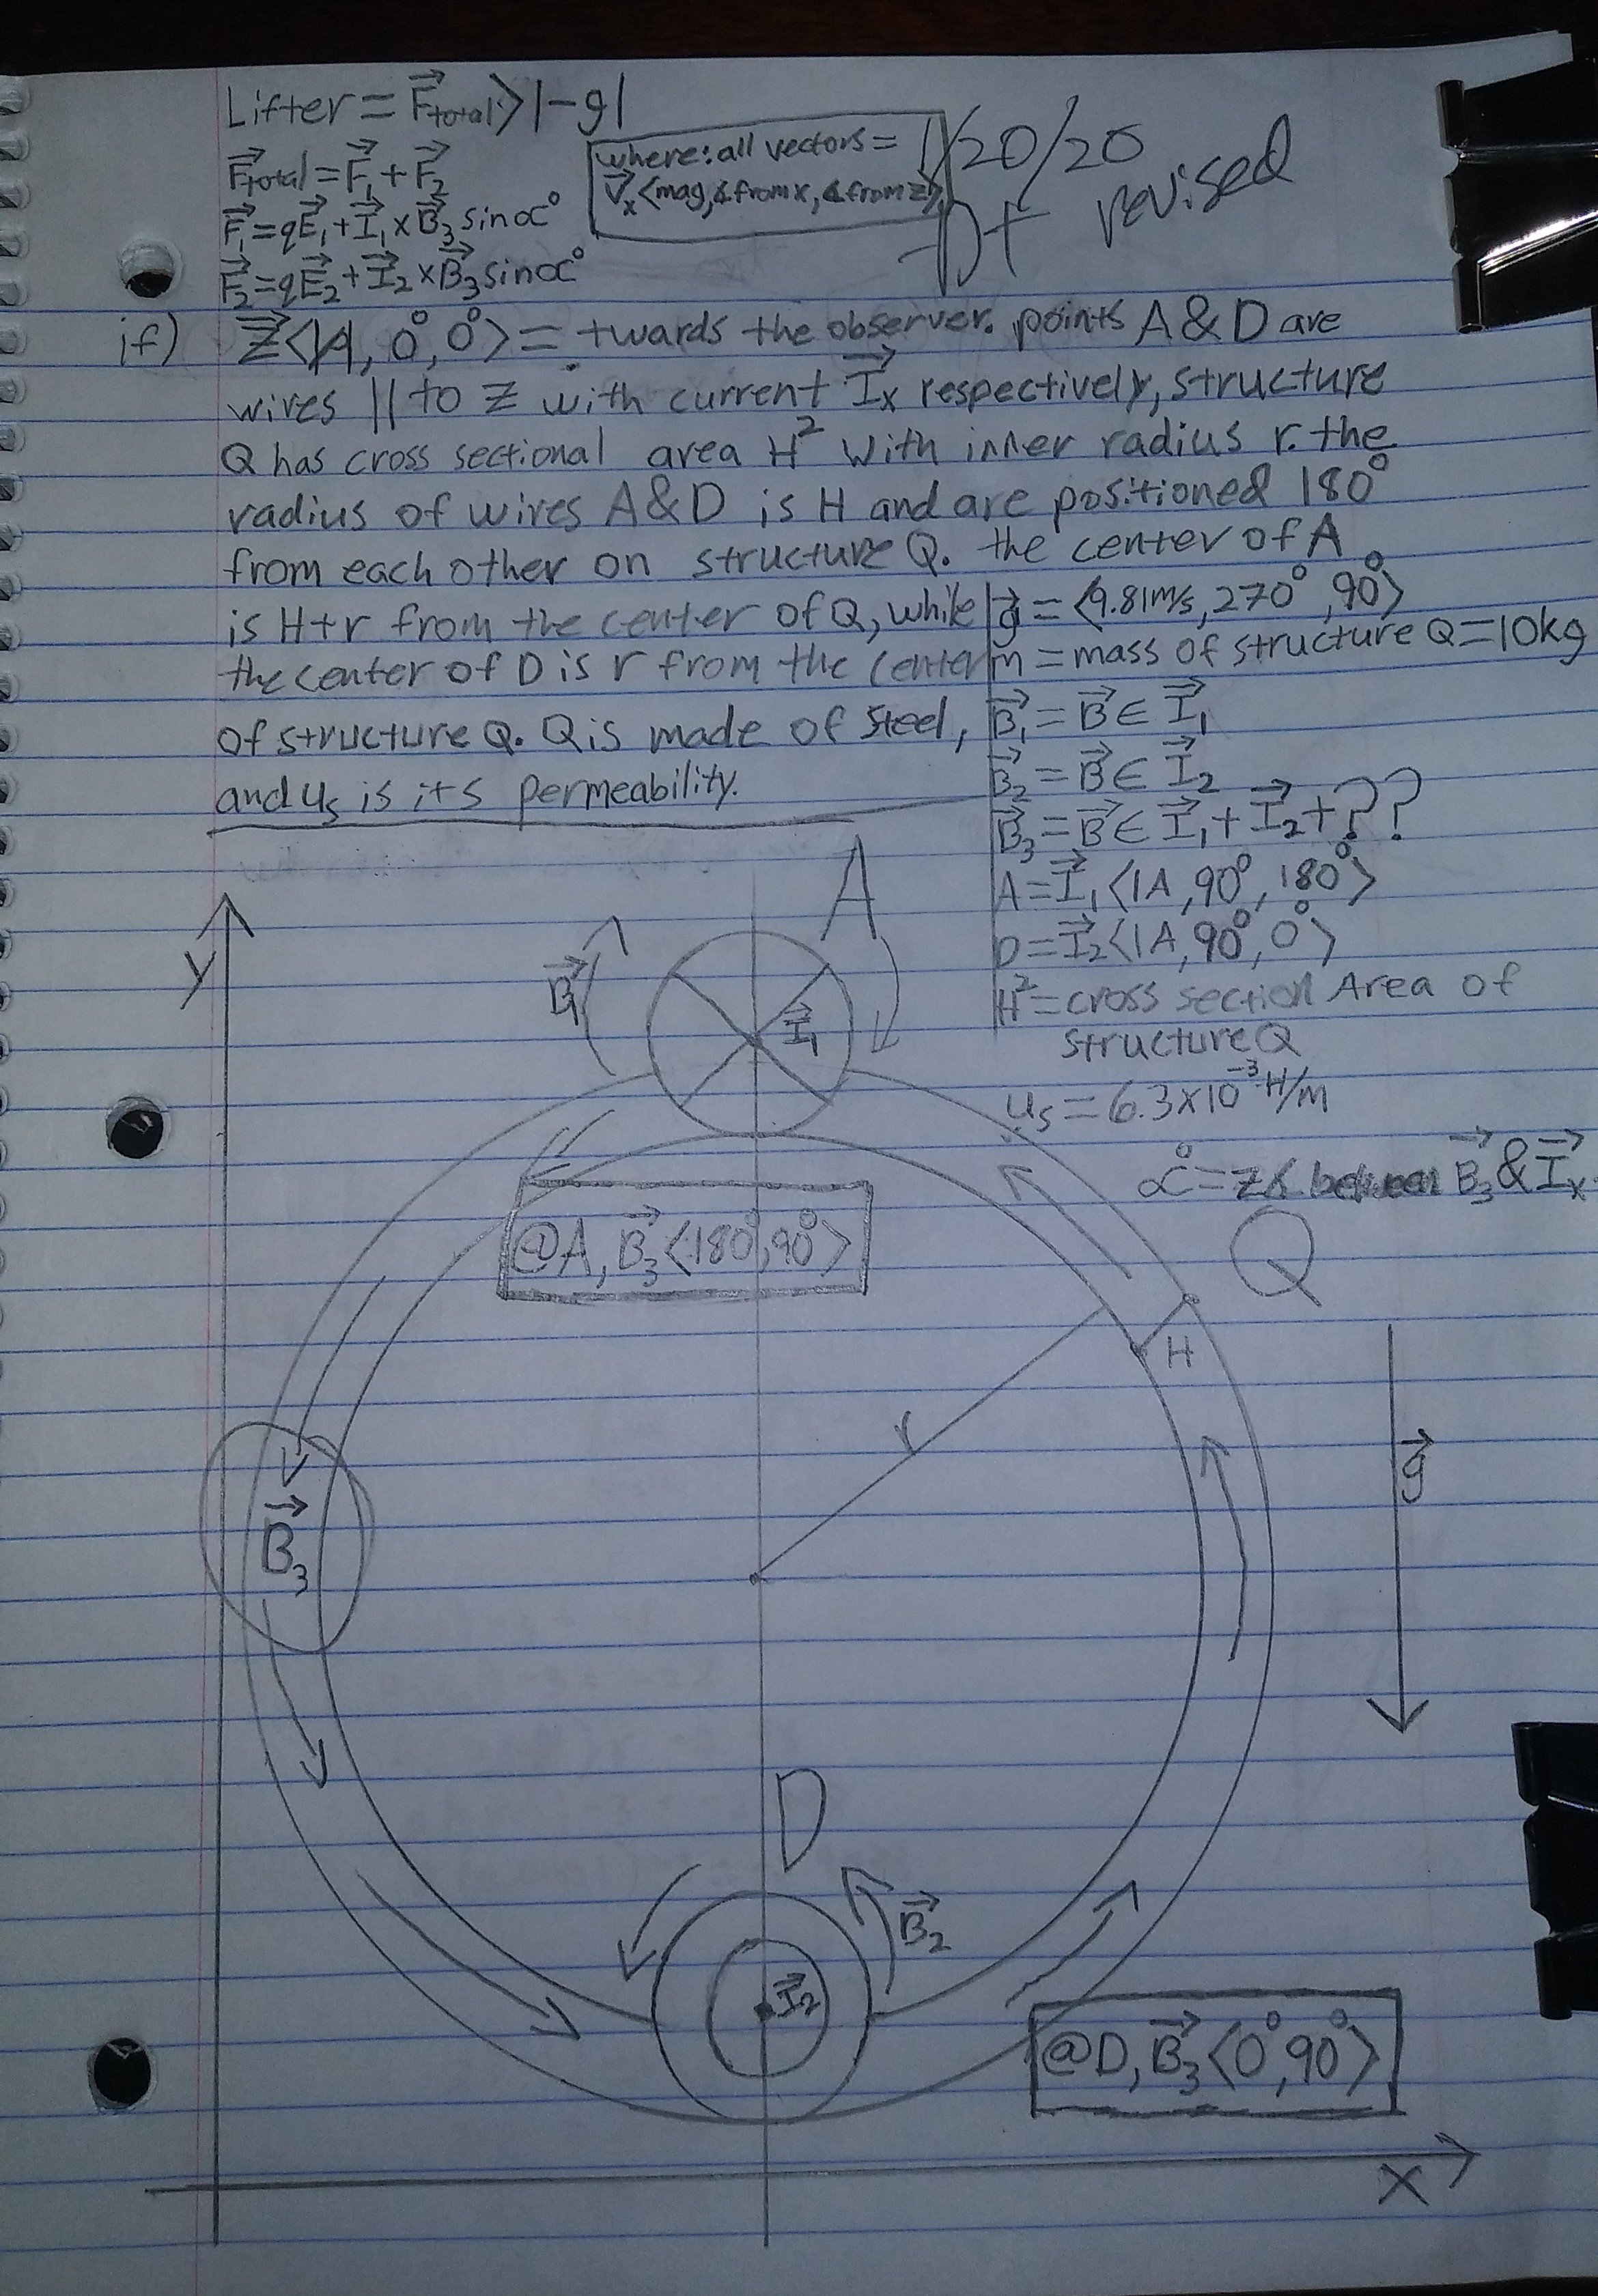 Lifter = F⃗total > |-g|
F⃗total = F⃗₁ + F⃗₂
F⃗₁ = qE⃗₁ + I⃗₁ × B⃗₃ sin∝°
F⃗₂ = qE⃗₂ + I⃗₂ × B⃗₃ sin∝°
where: all vectors =
V⃗ₓ <mag, ∡ from x, ∡ from z>
1/20/20
revised
if) Z⃗<|A|, 0°, 0°> = twards the observer. points A & D are
wires || to Z with current I⃗ₓ respectively, structure
Q has cross sectional area H² with inner radius r. the
radius of wires A&D is H and are positioned 180°
from each other on structure Q. the center of A
is H+r from the center of Q, while
the center of D is r from the center
of structure Q. Q is made of Steel,
and us is its permeability.
g⃗ = <9.81m/s, 270°, 90°>
m = mass of structure Q = 10kg
B⃗₁ = B⃗ ∈ I⃗₁
B⃗₂ = B⃗ ∈ I⃗₂
B⃗₃ = B⃗ ∈ I⃗₁ + I⃗₂ + ??
A = I⃗₁ <1A, 90°, 180°>
D = I⃗₂ <1A, 90°, 0°>
H² = cross section Area of
structure Q
us = 6.3×10⁻³ H/m
∝° = Z∡ between B⃗₃ & I⃗ₓ
A
y
B⃗₁
I⃗₁
@A, B⃗₃ <180°, 90°>
Q
H
r
g⃗
B⃗₃
D
B⃗₂
I⃗₂
@D, B⃗₃ <0°, 90°>
x